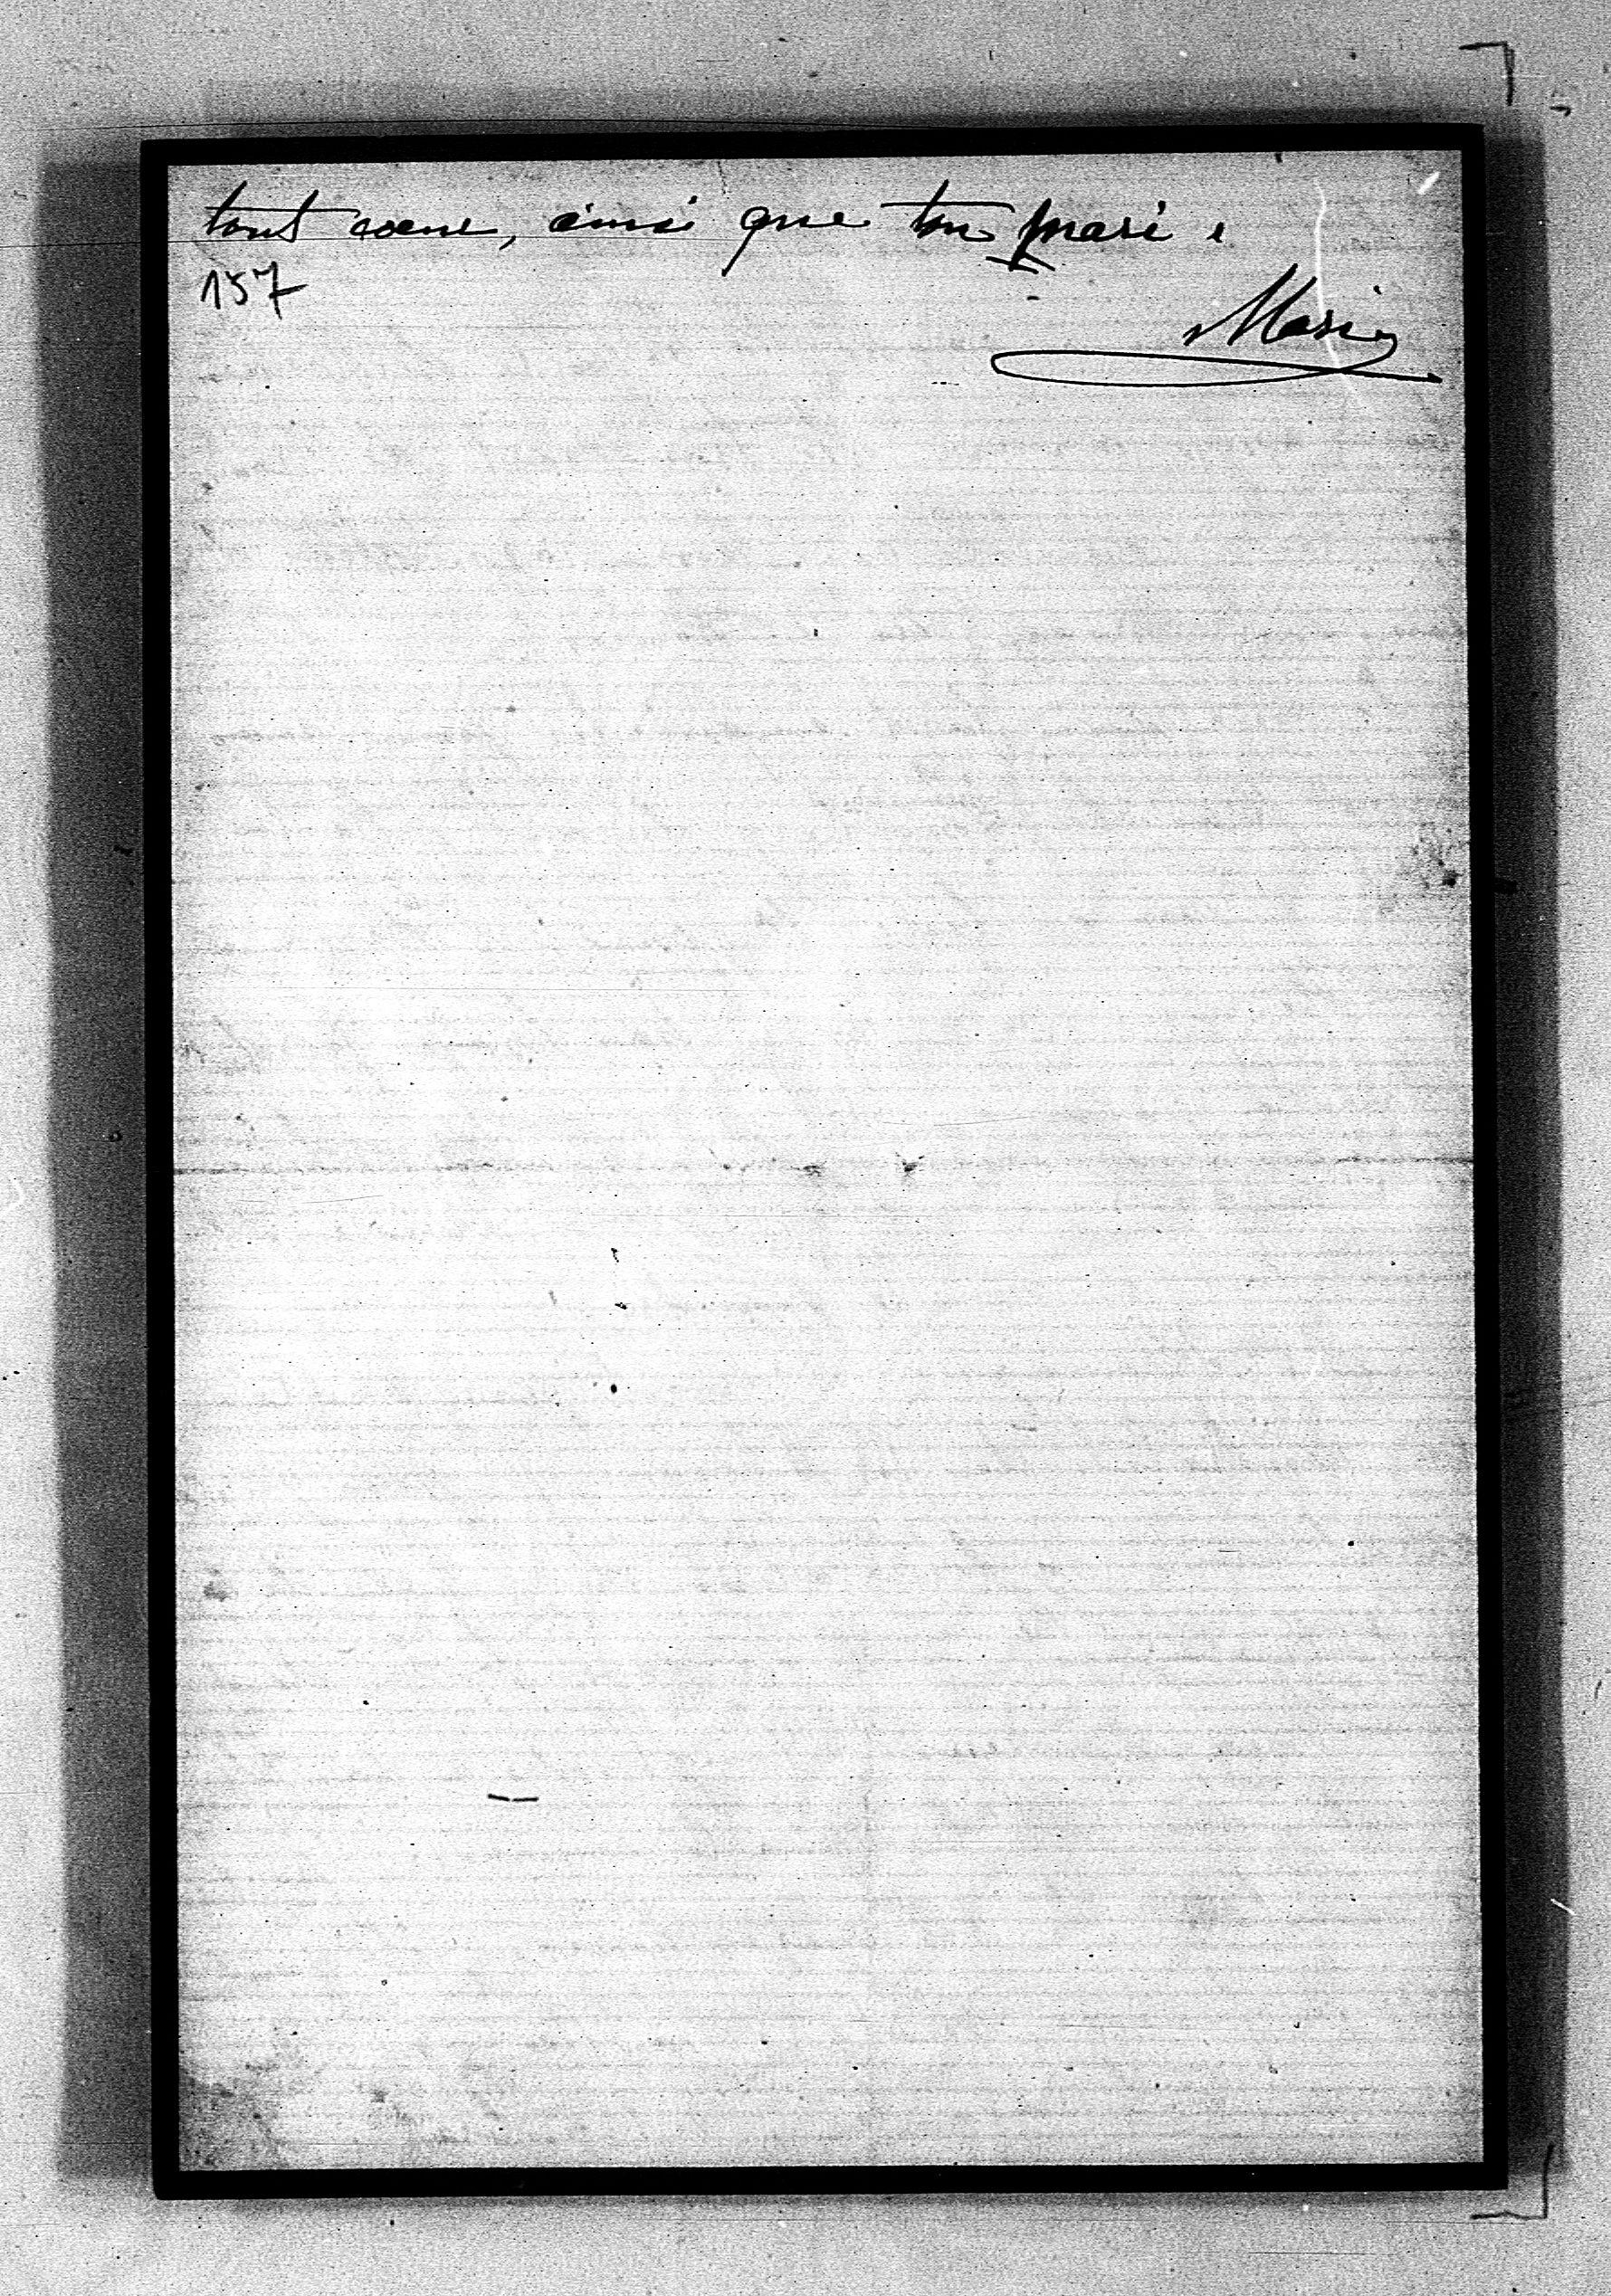 tout coeur, ainsi que ton mari.
157
Marie